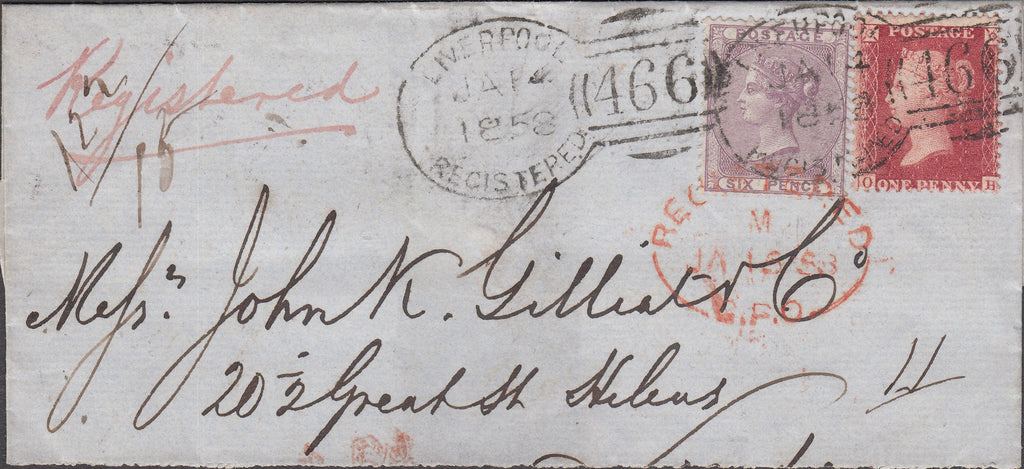 Registered
LIVERPOOL
JA 12
1858
REGISTERED
466
POSTAGE
SIX PENCE
POSTAGE
O ONE PENNY H
466
REGISTERED
M
JA 13 58
G.P.O
Messrs. John K. Gilliat & Co
20 ½ Great St Helens